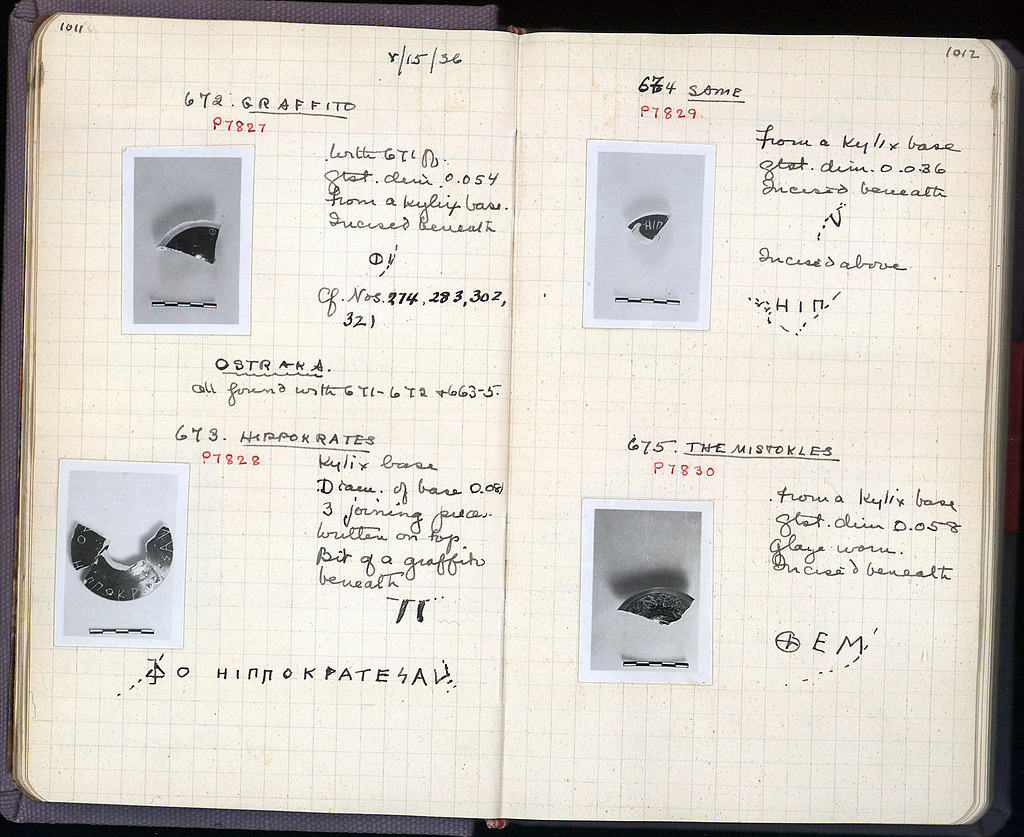 1011
8/15/36
672. GRAFFITO
P7827
With 671
gtst. dim. 0.054
From a kylix base.
Incised beneath
Cf. Nos. 274, 283, 302,
321
OSTRAKA.
All found with 671-672 + 663-5.
673. HIPPOKRATES
P7828
Kylix base
Diam. of base 0.081
3 joining pieces.
Written on top
Bit of a graffito
beneath
Ο ΗΙΠΠΟΚΡΑΤΕSΑ
1012
674 SAME
P7829
From a kylix base
gtst. dim. 0.036
Incised beneath
Incised above
ΗΙΠ
675. THEMISTOKLES
P7830
From a kylix base
gtst. dim 0.058
Glaze worn.
Incised beneath
⊕ΕΜ